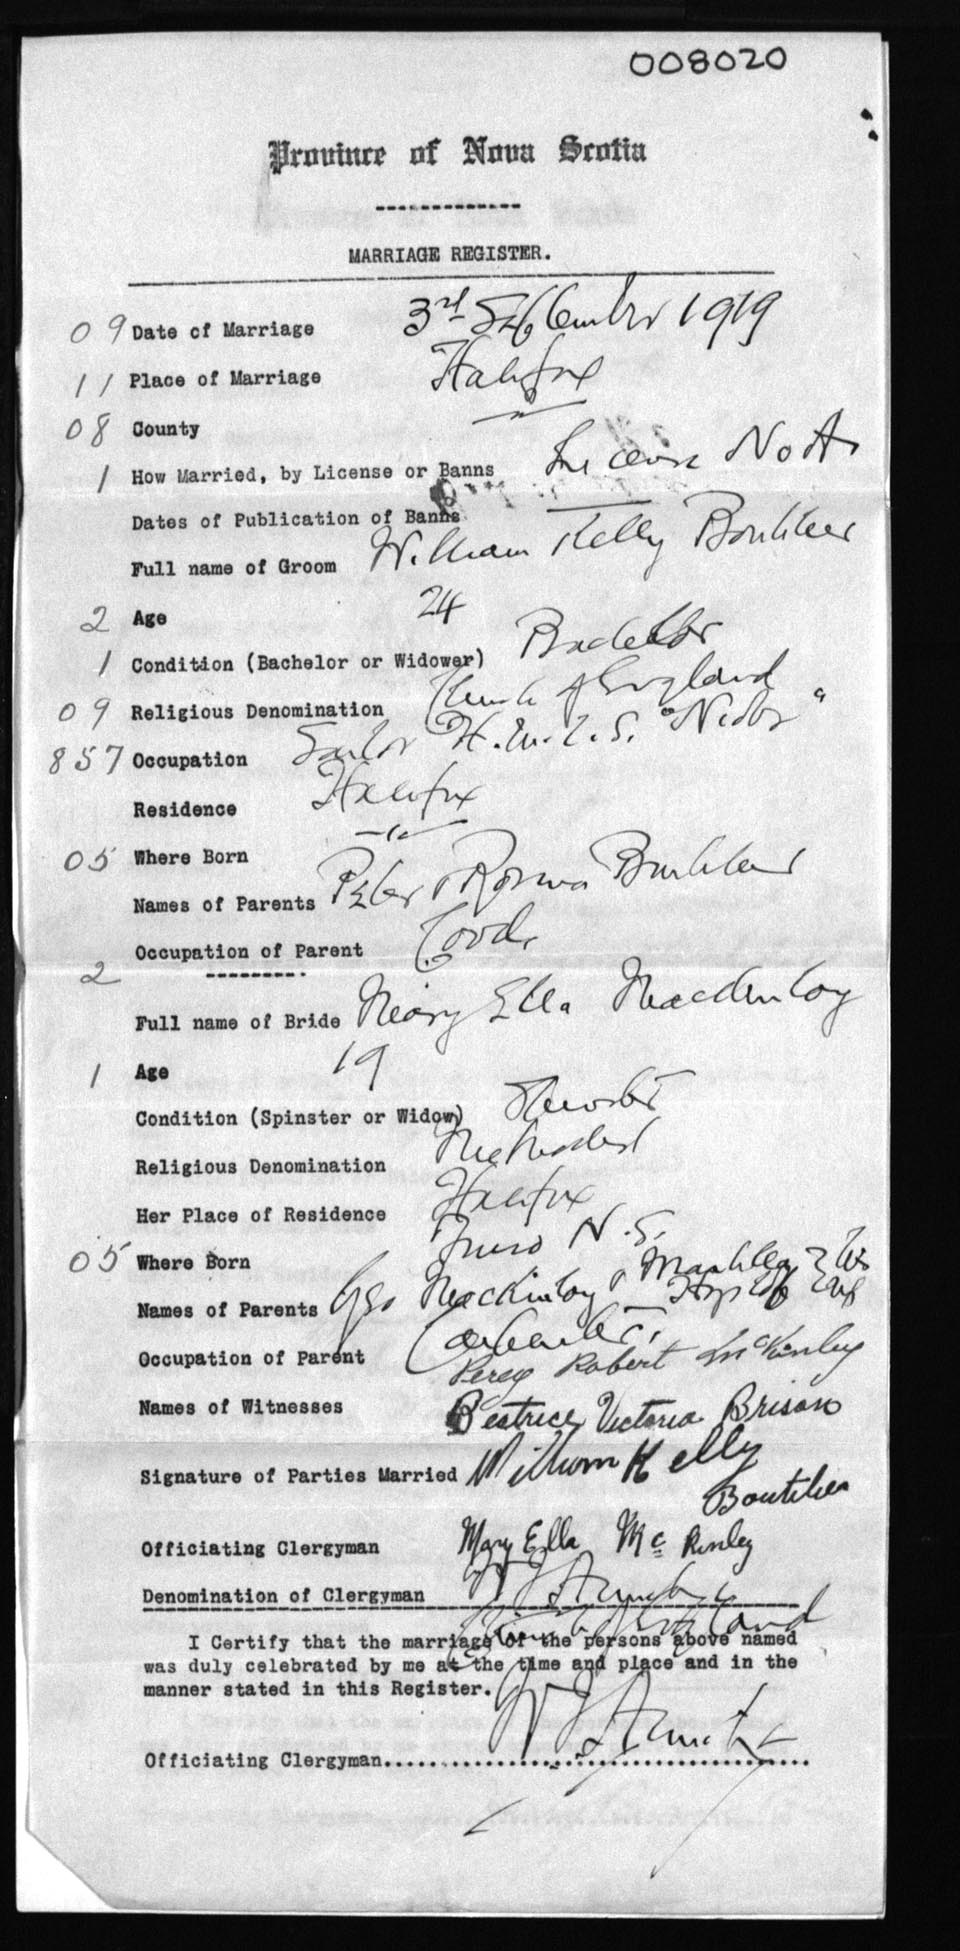 008020
Province of Nova Scotia
MARRIAGE REGISTER.
09 Date of Marriage 3rd September 1919
11 Place of Marriage Halifax
08 County "
1 How Married, by License or Banns License No
Dates of Publication of Banns
Full name of Groom William Kelly Boutilier
2 Age 24
1 Condition (Bachelor or Widower) Bachelor
09 Religious Denomination Church of England
857 Occupation Sailor H.M.C.S. "Niobe"
Residence Halifax
05 Where Born "
Names of Parents Peter Boutilier
Occupation of Parent
2
Full name of Bride Mary Ella MacKinlay
1 Age 19
Condition (Spinster or Widow) Spinster
Religious Denomination Methodist
Her Place of Residence Halifax
05 Where Born Truro N.S.
Names of Parents Geo MacKinlay
Occupation of Parent Carpenter
Percy Robert McKinley
Names of Witnesses
Beatrice Victoria Brison
Signature of Parties Married William Kelly
Boutilier
Officiating Clergyman Mary Ella McKinley
Denomination of Clergyman
Church of England
I Certify that the marriage of the persons above named
was duly celebrated by me at the time and place and in the
manner stated in this Register.
Officiating Clergyman